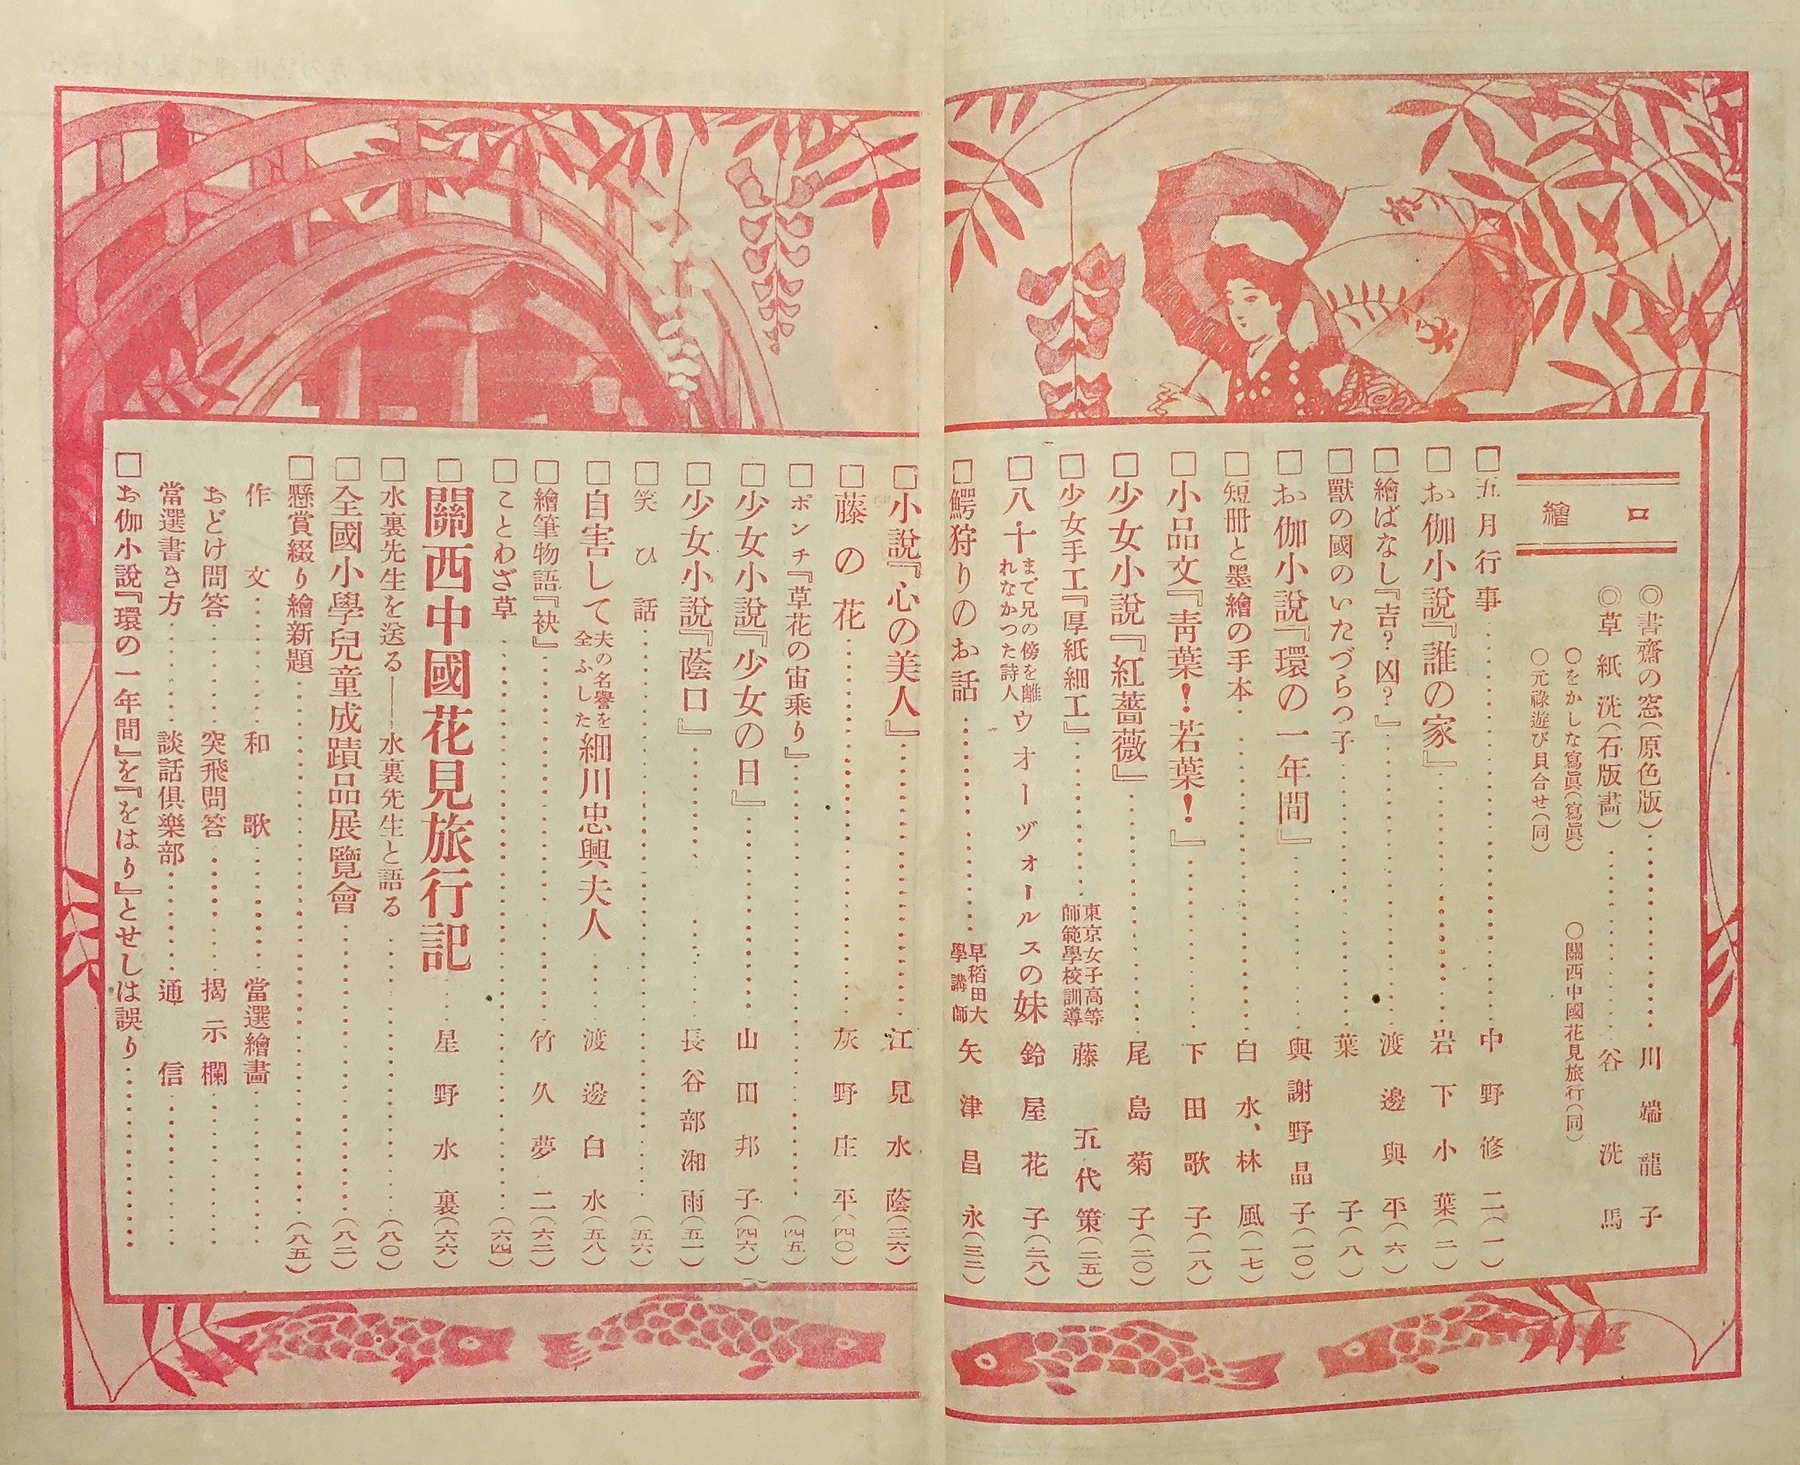 口繪
◎書齋の窓(原色版)……川端龍子
◎草紙洗(石版畵)……谷洗馬
○をかしな寫眞(寫眞)　○關西中國花見旅行(同)
○元祿遊び貝合せ(同)
□五月行事……中野修二(一)
□お伽小說『誰の家』……岩下小葉(二)
□繪ばなし『吉?凶?』……渡邊與平(六)
□獸の國のいたづらつ子……葉子(八)
□お伽小說『環の一年間』……與謝野晶子(一〇)
□短冊と墨繪の手本……白水、林風(一七)
□小品文『靑葉!若葉!』……下田歌子(一八)
□少女小說『紅薔薇』……尾島菊子(二〇)
□少女手工『厚紙細工』……東京女子高等師範學校訓導 藤五代策(二五)
□八十まで兄の傍を離れなかつた詩人ウオーヅォールスの妹 鈴屋花子(二八)
□鰐狩りのお話……早稻田大學講師 矢津昌永(三二)
□小說『心の美人』……江見水蔭(三六)
□藤の花……灰野庄平(四〇)
□ポンチ『草花の宙乗り』……(四五)
□少女小說『少女の日』……山田邦子(四六)
□少女小說『蔭口』……長谷部湘雨(五一)
□笑ひ話……(五六)
□自害して夫の名譽を全ふした細川忠興夫人……渡邊白水(五八)
□繪筆物語『袂』……竹久夢二(六二)
□ことわざ草……(六四)
□關西中國花見旅行記……星野水裏(六六)
□水裏先生を送る——水裏先生と語る……(八〇)
□全國小學兒童成蹟品展覽會……(八二)
□懸賞綴り繪新題……(八五)
作文……和歌……當選繪畵……
おどけ問答……突飛問答……揭示欄……
當選書き方……談話俱樂部……通信……
□お伽小說『環の一年間』を『をはり』とせしは誤り……